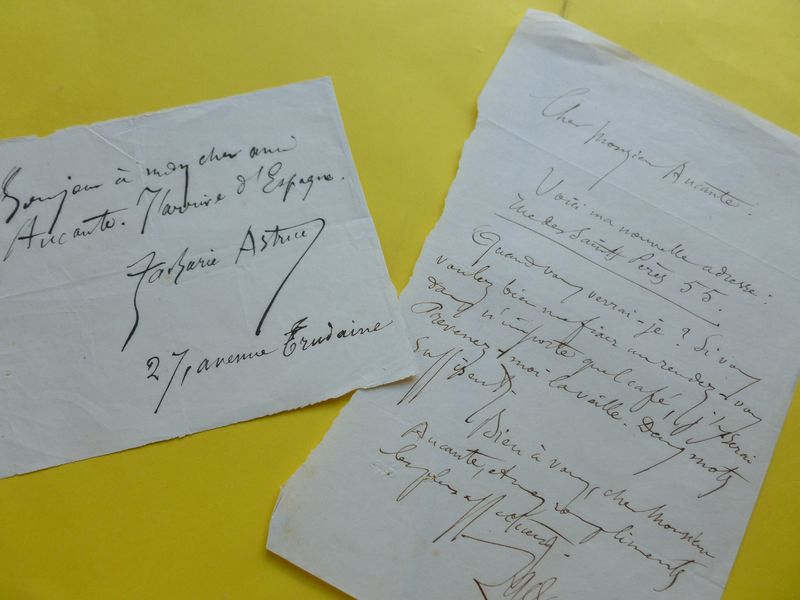 Bonjour à mon cher ami
Aucante. J'arrive d'Espagne.
Zacharie Astruc
27, avenue Trudaine
Cher Monsieur Aucante:
Voici ma nouvelle adresse:
Rue des Saints Pères 55.
Quand vous verrai-je? Si vous
voulez bien me fixer un rendez-vous
dans n'importe quel café, j'y serai
Prevenez-moi la veille. Deux mots
suffisent.
Bien à vous, cher Monsieur
Aucante, et mes compliments
les plus affectueux.